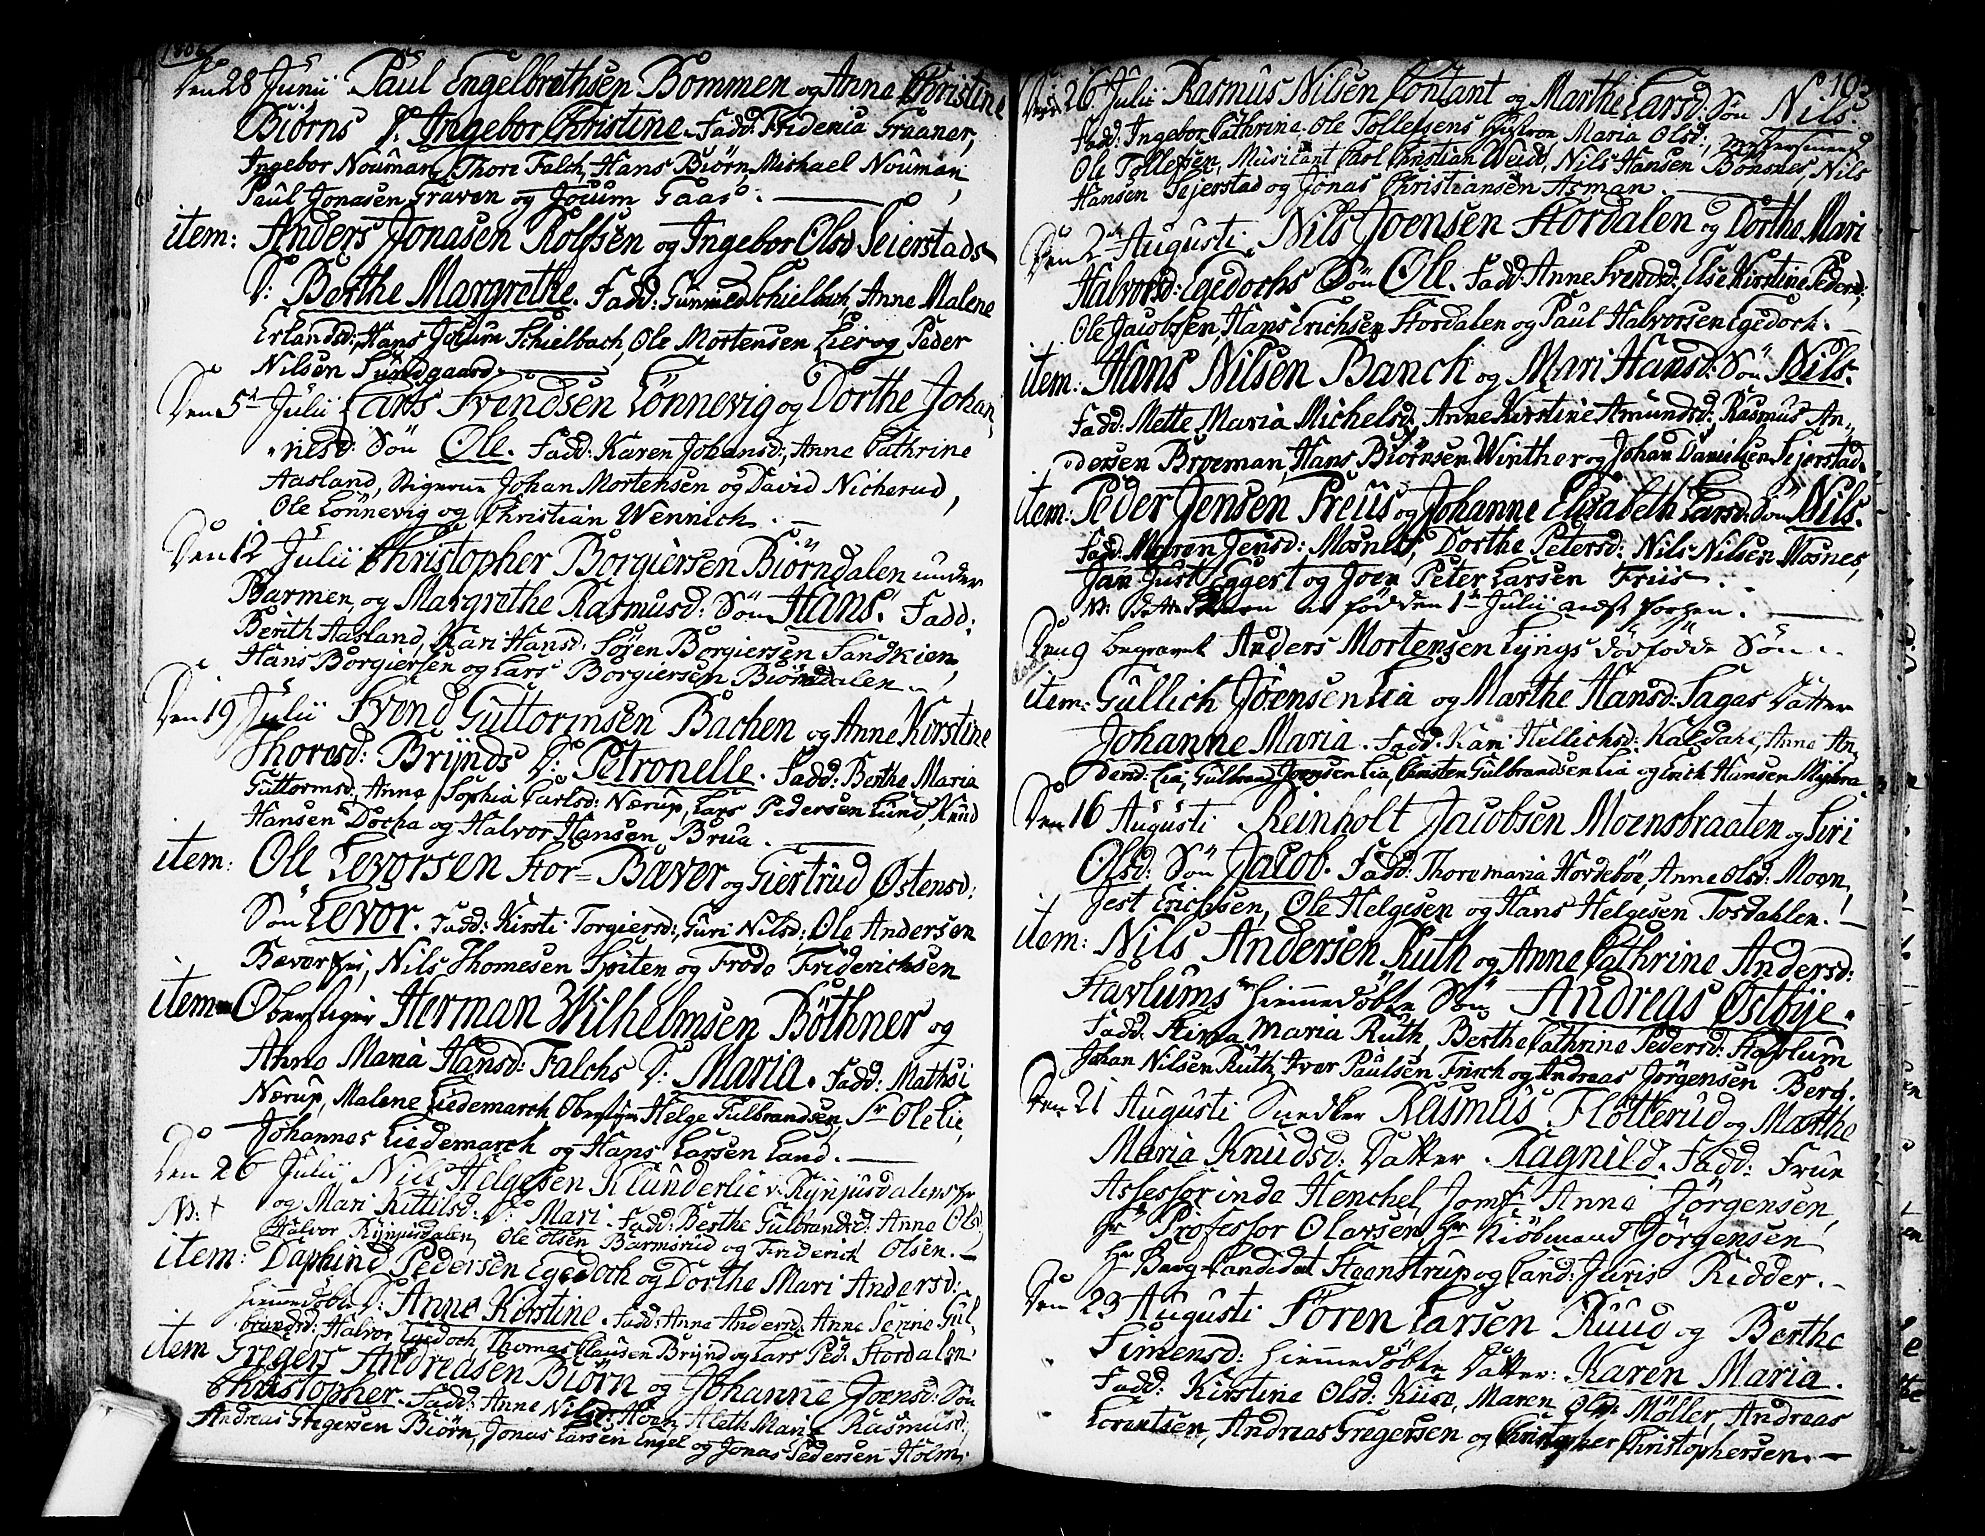 1806
Den 28 Junii Paul Engelbrethsen Bommen og Anne Christine
Biørns D: Ingebor Christine. Fadd: Fridericia Graaner,
Ingebor Nouman, Thore Falch, Hans Biørn, Michael Nouman,
Paul Jonasen Graven og Jocum Gaas.
item: Anders Jonasen Rolfsen og Ingebor Olsd Seierstads
D: Berthe Margrethe. Fadd: Gunnild Schielbach, Anne Malene
Erlandsd:, Hans Jocum Schielbach, Ole Mortensen Lier og Peder
Nilsen Sundgaard.
Den 5te Julii Lars Svendsen Lønnevig og Dorthe Johan-
nesd: Søn Ole. Fadd: Karen Johansd:, Anne Cathrine
Aasland, Stigerne Johan Mortensen og David Nicherud,
Ole Lønnevig og Christian Wennich.
Den 12 Julii Christopher Borgiersen Biørndalen under
Barmen, og Margrethe Rasmusd: Søn Hans. Fadd:
Berith Aasland, Kari Hansd: Søren Borgiersen Sandkien,
Hans Borgiersen og Lars Borgiersen Biørndalen.
Den 19 Julii Svend Guttormsen Bachen og Anne Kirstine
Thoresd: Brynds D: Petronelle. Fadd: Berthe Maria
Guttormsd:, Anne Sophia Carlsd: Nærup, Lars Pedersen Lund, Knud
Hansen Docha og Halvor Hansen Brua.
item: Ole Levorsen Stor-Bæver og Giertrud Østensd:
Søn Levor. Fadd: Kirsti Torgiersd:, Guri Nilsd: Ole Andersen
Bæver, Nils Thomesen Spiten og Frode Friderichsen
item Oberstiger Herman Wilhelmsen Bøthner og
Anne Maria Hansd: Falchs D: Maria. Fadd: Mathsi
Nærup, Malene Liedemarch Oberstiger Helge Gulbrandsen, Sr Ole Lie,
Johannes Liedemarch og Hans Larsen Land.
Den 26 Julii Nils Helgesen Klunderlie v. Rynjusdalens
N: † og Mari Kittilsd: D: Mari. Fadd: Berthe Gulbrandsd: Anne Olsd,
Halvor Rynjusdalen, Ole Olsen Barmsrud og Friderich Olsen.
item: Daphind Pedersen Egedoch og Dorthe Mari Andersd:
Hiemmedøbte D: Anne Kirstine. Fadd: Anne Andersd: Anne Senne Gul-
brandsd: Halvor Egedoch, Thomas Clausen Brynd og Lars Ped. Stordalen
item Gregers Andreasen Biørn og Johanne Joensd: Søn
Christopher. Fadd: Anne Nilsd: Hoen, Aleth Marie Rasmusd:,
Andreas Gregersen Biørn, Jonas Larsen Engel og Jonas Pedersen Holm.
Den 26 Julii Rasmus Nilsen Contant og Marthe Larsd: Søn Nils.
Fadd: Ingebor Cathrine. Ole Tollefsens Hustroe Maria Olsd:,
Ole Tollefsen, Musicant Carl Christian Weid, Nils Hansen Bonsnes, Nils
Hansen Sejerstad og Jonas Christiansen Asman.
Den 2den Augusti Nils Joensen Stordalen og Dorthe Mari
Halvorsd: Egedochs Søn Ole. Fadd: Anne Svendsd:, Else Kirstine Pedersd:,
Ole Jacobsen, Hans Erichsen Stordalen og Paul Halvorsen Egedoch.
item: Hans Nilsen Banck og Mari Hansd: Søn Nils.
Fadd: Mette Maria Michelsd:, Anne Kirstine Amundsd: Rasmus An-
dersen Broeman, Hans Biørnsen Winther og Johan Danielsen Sejerstad.
item: Peder Jensen Freiis og Johanne Elisabeth Larsd: Søn Nils.
Fadd: Maren Jensd: Mosnes, Dorthe Petersd: Nils Nilsen Mosnes,
Jan Just Eggert og Joen Peter Larsen Friis.
N: Dette Barn er fødd den 1te Julii
Den 9 begravet Anders Mortensen Lyngs dødfødde Søn.
item: Gullich Joensen Lia og Marthe Hansd: Sagas Datter
Johanne Maria. Fadd. Kari Hellichsd: Kaldahl, Anne An-
dersd: Lia, Gulbrand Joensen Lia, Christen Gulbrandsen Lia og Erich Hansen Myhra
Den 16 Augusti Reinholt Jacobsen Moensbraaten og Siri
Olsd: Søn Jacob. Fadd: Thore maria Hordeboe, Anne Olsd: Moen,
Jest Erichsen, Ole Helgesen og Hans Helgesen Tosdahlen.
item: Nils Andersen Ruth og Anne Cathrine Andersd:
Stavlums Hiemmedøbte Søn Andreas Østbye.
Fadd: Maria Ruth, Berthe Cathrine Pedersd: Stavlum
Johan Nilsen Ruth, Iver Paulsen Frisch og Andreas Jørgensen Berg.
Den 21 Augusti Snedker Rasmus Fløtterud og Marthe
Maria Knudsd: Datter Ragnild. Fadd: Frue
Assessorinde Henchel, Jomf: Anne Jørgensen,
Hr Professor Olavsen, Hr Kiöbmand Jørgensen
Hr Berg-Candidat Steenstrup og Cand: Juris Ridder.
Den 23 Augusti Søren Larsen Ruud og Berthe
Simensd: Hiemmedøbte Datter: Karen Maria.
Fadd: Kirstine Olsd: Kuse, Maren Olsd: Møller, Andreas
Lorentsen, Andreas Gregersen og Christopher Christophersen.